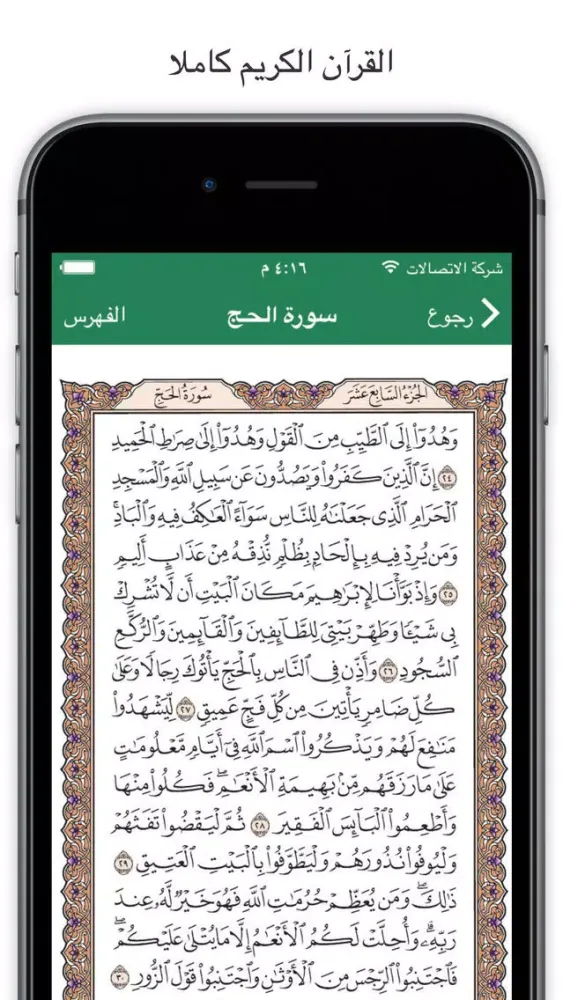 القرآن الكريم كاملا
شركة الاتصالات ٤:١٦ م
رجوع سورة الحج الفهرس
الجزء السابع عشر سورة الحج
وَهُدُوٓاْ إِلَى ٱلطَّيِّبِ مِنَ ٱلۡقَوۡلِ وَهُدُوٓاْ إِلَىٰ صِرَٰطِ ٱلۡحَمِيدِ
٢٤ إِنَّ ٱلَّذِينَ كَفَرُواْ وَيَصُدُّونَ عَن سَبِيلِ ٱللَّهِ وَٱلۡمَسۡجِدِ
ٱلۡحَرَامِ ٱلَّذِي جَعَلۡنَٰهُ لِلنَّاسِ سَوَآءً ٱلۡعَٰكِفُ فِيهِ وَٱلۡبَادِۚ
وَمَن يُرِدۡ فِيهِ بِإِلۡحَادِۭ بِظُلۡمٖ نُّذِقۡهُ مِنۡ عَذَابٍ أَلِيمٖ
٢٥ وَإِذۡ بَوَّأۡنَا لِإِبۡرَٰهِيمَ مَكَانَ ٱلۡبَيۡتِ أَن لَّا تُشۡرِكۡ
بِي شَيۡـٔٗا وَطَهِّرۡ بَيۡتِيَ لِلطَّآئِفِينَ وَٱلۡقَآئِمِينَ وَٱلرُّكَّعِ
ٱلسُّجُودِ ٢٦ وَأَذِّن فِي ٱلنَّاسِ بِٱلۡحَجِّ يَأۡتُوكَ رِجَالٗا وَعَلَىٰ
كُلِّ ضَامِرٖ يَأۡتِينَ مِن كُلِّ فَجٍّ عَمِيقٖ ٢٧ لِّيَشۡهَدُواْ
مَنَٰفِعَ لَهُمۡ وَيَذۡكُرُواْ ٱسۡمَ ٱللَّهِ فِيٓ أَيَّامٖ مَّعۡلُومَٰتٍ
عَلَىٰ مَا رَزَقَهُم مِّنۢ بَهِيمَةِ ٱلۡأَنۡعَٰمِۖ فَكُلُواْ مِنۡهَا
وَأَطۡعِمُواْ ٱلۡبَآئِسَ ٱلۡفَقِيرَ ٢٨ ثُمَّ لۡيَقۡضُواْ تَفَثَهُمۡ
وَلۡيُوفُواْ نُذُورَهُمۡ وَلۡيَطَّوَّفُواْ بِٱلۡبَيۡتِ ٱلۡعَتِيقِ ٢٩
ذَٰلِكَۖ وَمَن يُعَظِّمۡ حُرُمَٰتِ ٱللَّهِ فَهُوَ خَيۡرٞ لَّهُۥ عِندَ
رَبِّهِۦۗ وَأُحِلَّتۡ لَكُمُ ٱلۡأَنۡعَٰمُ إِلَّا مَا يُتۡلَىٰ عَلَيۡكُمۡۖ
فَٱجۡتَنِبُواْ ٱلرِّجۡسَ مِنَ ٱلۡأَوۡثَٰنِ وَٱجۡتَنِبُواْ قَوۡلَ ٱلزُّورِ ٣٠